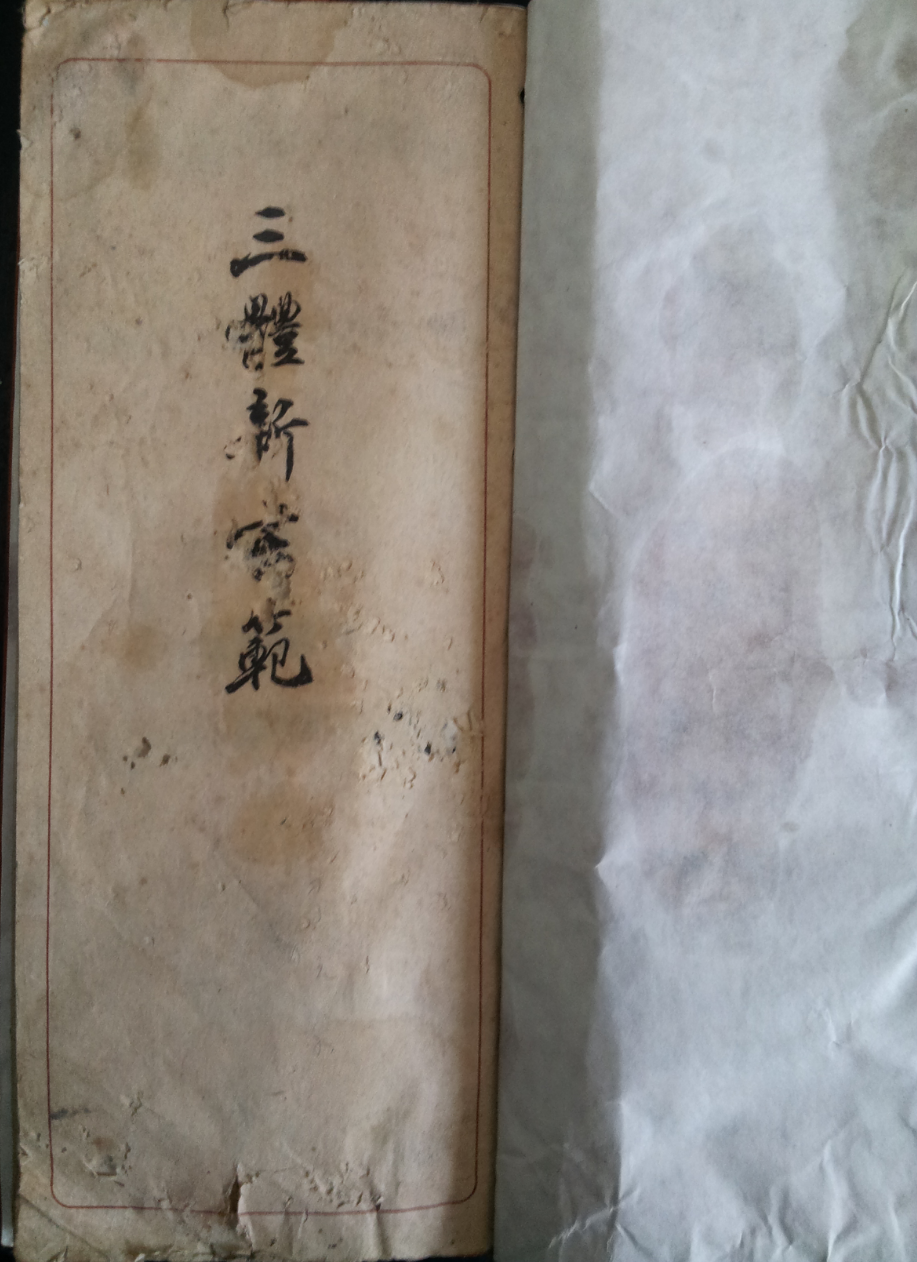 三體新範